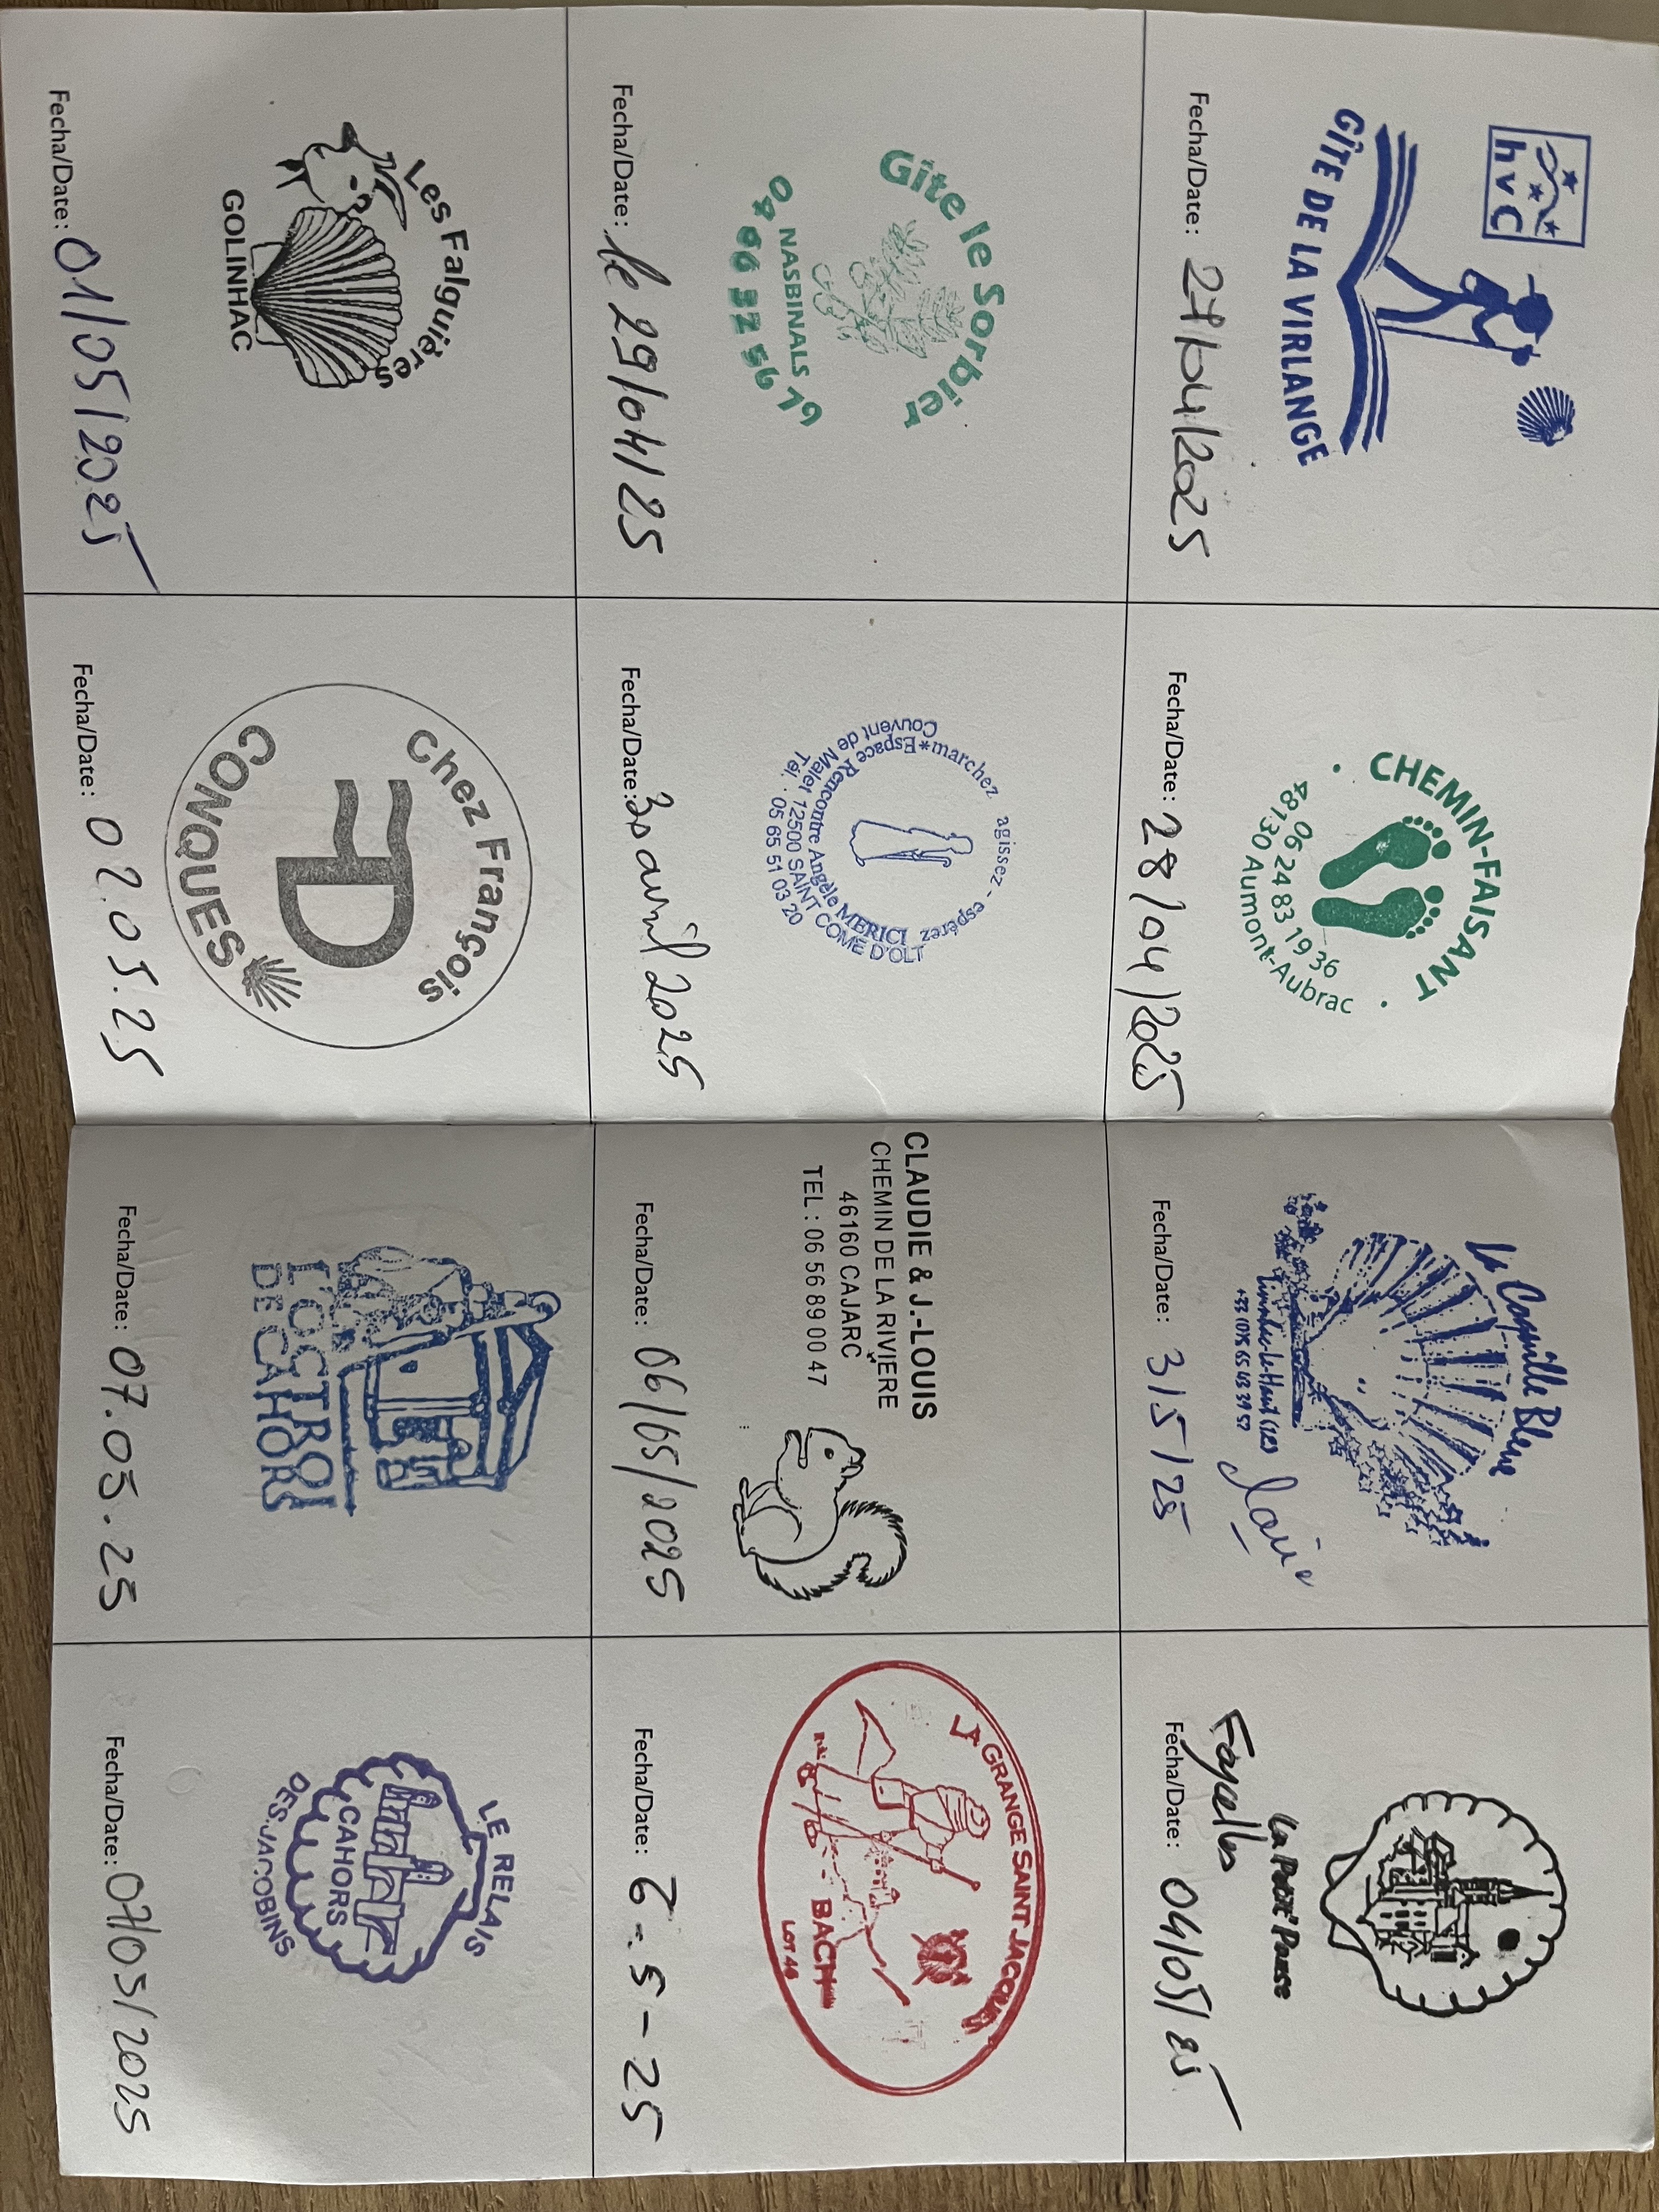 hvC
GÎTE DE LA VIRLANGE
Fecha/Date: 27/04/2025
CHEMIN-FAISANT
06 24 83 19 36
48130 Aumont-Aubrac
Fecha/Date: 28/04/2025
La Coquille Bleue
Livinhac-le-Haut (12)
Fecha/Date: 3/5/25
La Petite Pause
Fecha/Date: 04/05/25
Gîte le Sorbier
NASBINALS
04 66 32 56 79
Fecha/Date: le 29/04/25
marchez agissez - espérez
*Espace Rencontre Angèle MERICI
Couvent de Malet 12500 SAINT COME D'OLT
Tél. : 05 65 51 03 20
Fecha/Date: 30 avril 2025
CLAUDIE & J.-LOUIS
CHEMIN DE LA RIVIERE
46160 CAJARC
TEL : 06 56 89 00 47
Fecha/Date: 06/05/2025
LA GRANGE SAINT JACQUES
BACH
LOT 46
Fecha/Date: 6-5-25
Les Falguières
GOLINHAC
Fecha/Date: 01/05/2025
Chez François
CONQUES
Fecha/Date: 02.05.25
L'OCTROI
DE CAHORS
Fecha/Date: 07.05.25
LE RELAIS
CAHORS
DES JACOBINS
Fecha/Date: 07/05/2025